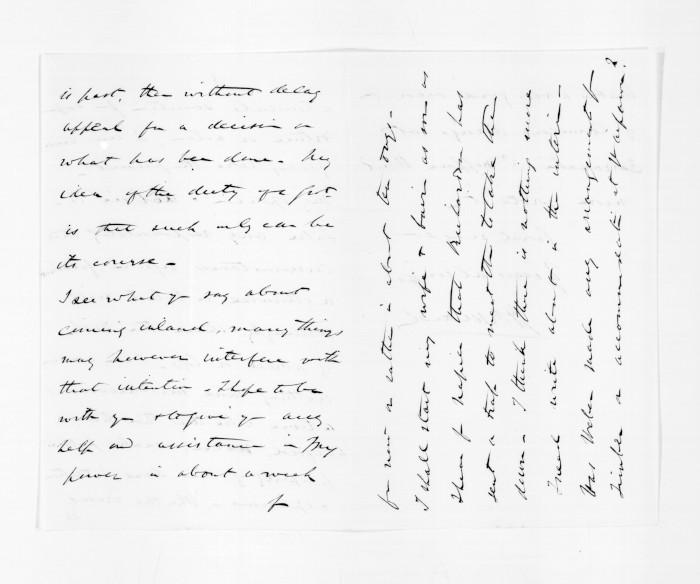 is past, then without delay
appeal for a decision on
what has been done - My
idea of the duty of a Govt
is that such only can be
its course -
I see what you say about
coming inland, many things
may however interfere with
that intention - I hope to be
with you & to give you any
help and assistance in my
power in about a week
fr
from now or rather in about ten days -
I shall start my wife & as soon as
I hear from Napier that Richardson has
sent a trap to meet them to take them
down - I think there is nothing more
I need write about in the interim -
Has Weber made any arrangement for
Timber or accommodation at Waipawa?